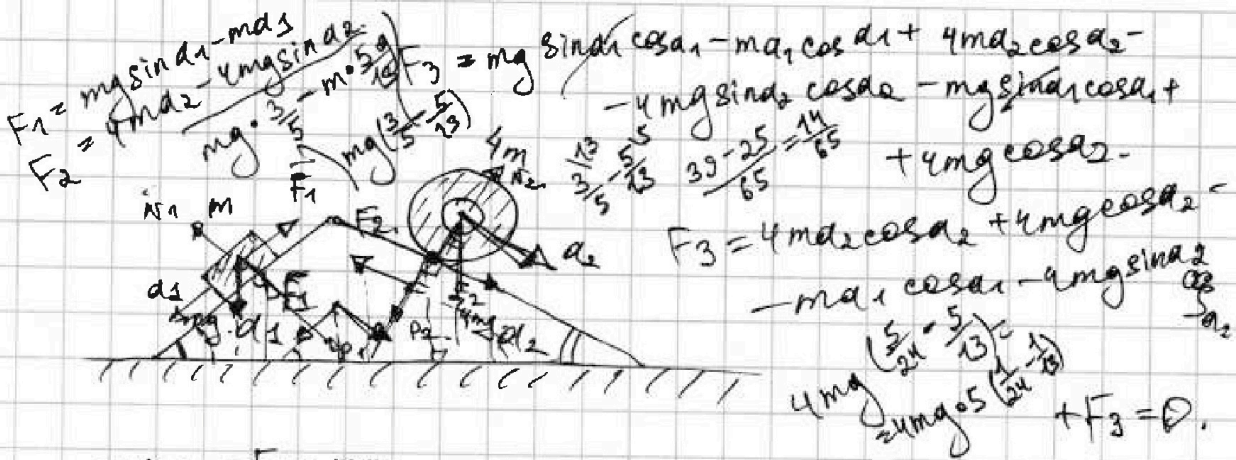 F₁ = mg sin α₁ - ma₁
F₂ = 4ma₂ - 4mg sin α₂
mg · 3/5 - m · 5g/13
mg(3/5 - 5/13)
F₃ = mg sin α₁ cos α₁ - ma₁ cos α₁ + 4ma₂ cos α₂ -
- 4mg sin α₂ cos α₂ - mg sin α₁ cos α₁ +
+ 4mg cos α₂ -
3/5 - 5/13
39 - 25 / 65 = 14/65
F₃ = 4ma₂ cos α₂ + 4mg cos α₂ -
- ma₁ cos α₁ - 4mg sin α₂ cos α₂
4mg(5/24 - 5/13) =
= 4mg · 5(1/24 - 1/13)
+ F₃ = 0.
N₁ m F₁ F₂ 4m N₂ a₂
a₁ mg α₁ F₁ P₁ P₂ F₂ 4mg α₂